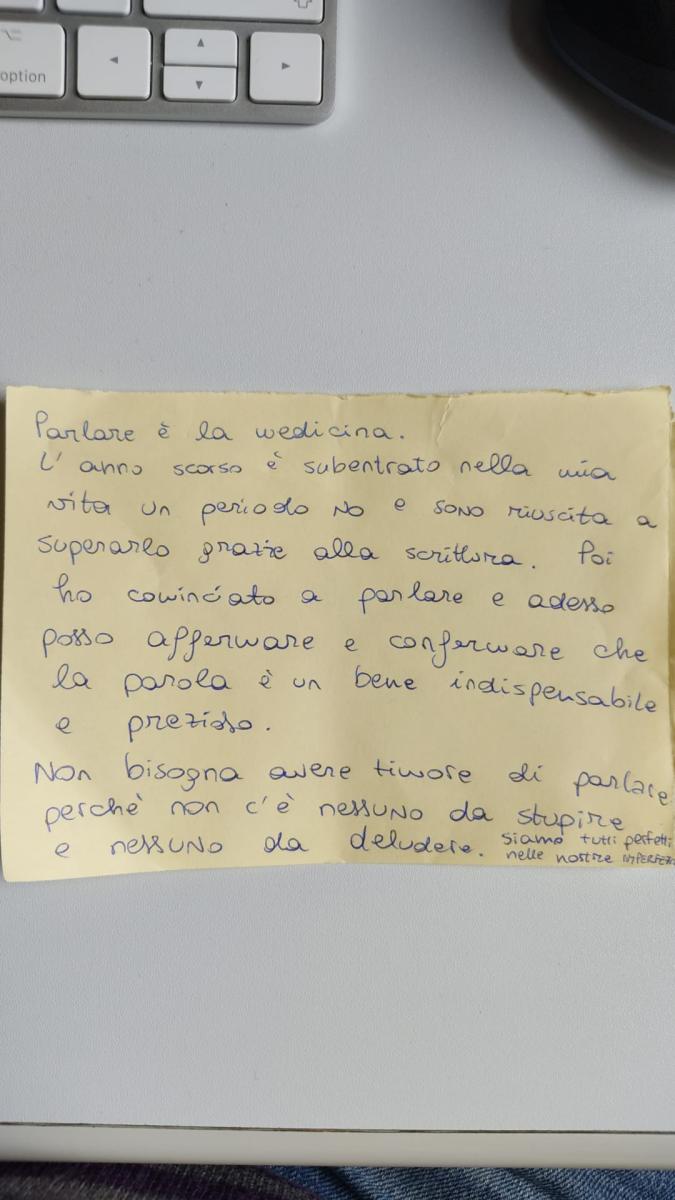 option
Parlare è la medicina.
L'anno scorso è subentrato nella mia
vita un periodo NO e sono riuscita a
superarlo grazie alla scrittura. Poi
ho cominciato a parlare e adesso
posso affermare e confermare che
la parola è un bene indispensabile
e prezioso.
Non bisogna avere timore di parlare
perchè non c'è nessuno da stupire
e nessuno da deludere. Siamo tutti perfetti
nelle nostre